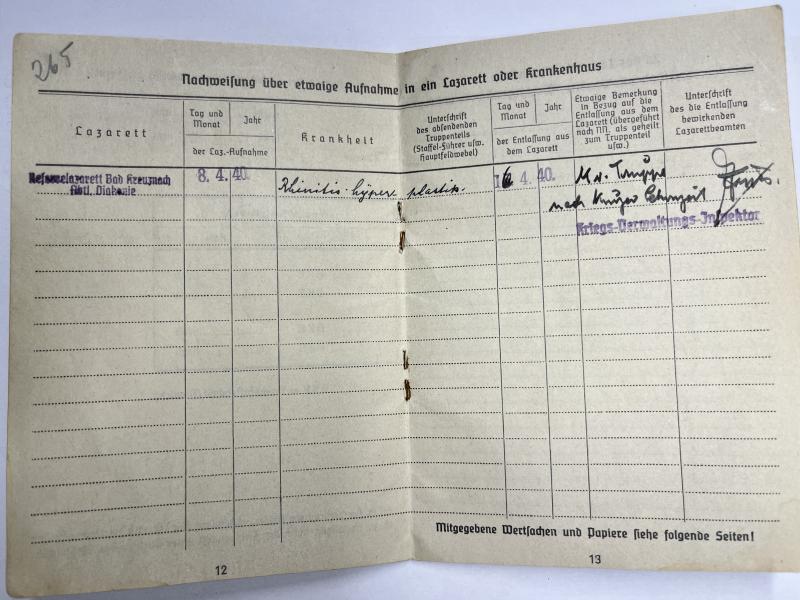 265
Nachweisung über etwaige Aufnahme in ein Lazarett oder Krankenhaus
Lazarett
Tag und Monat
Jahr
der Laz.-Aufnahme
Krankheit
Unterschrift
des absendenden
Truppenteils
(Staffel-Führer usw.
Hauptfeldwebel)
Tag und
Monat
Jahr
der Entlassung aus
dem Lazarett
Etwaige Bemerkung
in Bezug auf die
Entlassung aus dem
Lazarett (übergeführt
nach NN. als geheilt
zum Truppenteil
usw.)
Unterschrift
des die Entlassung
bewirkenden
Lazarettbeamten
Reservelazarett Bad Kreuznach
Abtl. Diakonie
8. 4. 40.
Rhinitis hyperplastik.
16 4. 40.
Kv. Truppe
nach kurzer Schonzeit
Kriegs-Verwaltungs-Inspektor
Mitgegebene Wertsachen und Papiere siehe folgende Seiten!
12
13